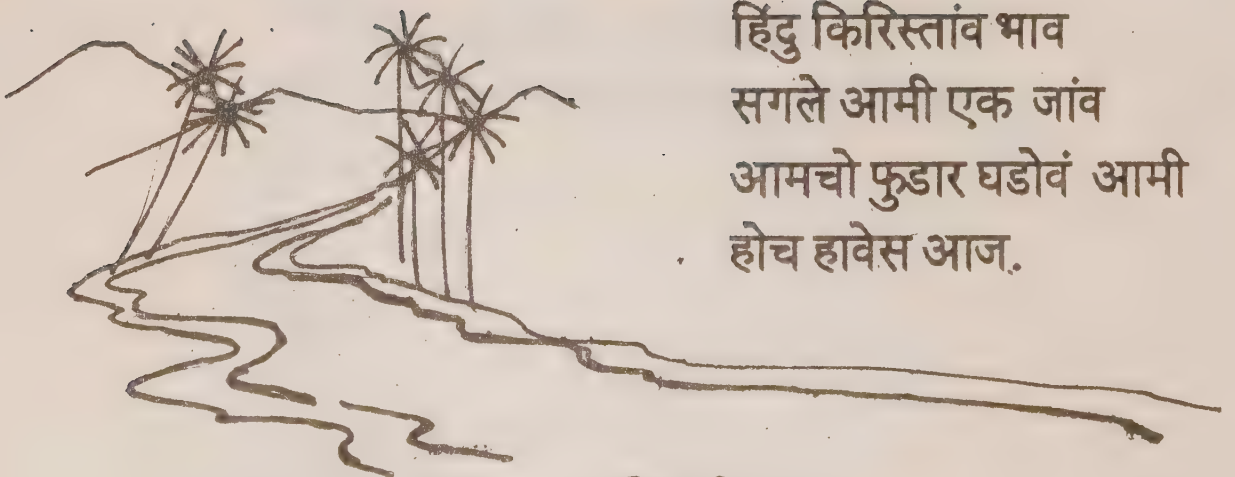 हिंदु किरिस्तांव भाव
सगले आमी एक जांव
आमचो फुडार घडोवं आमी
होच हावेस आज.